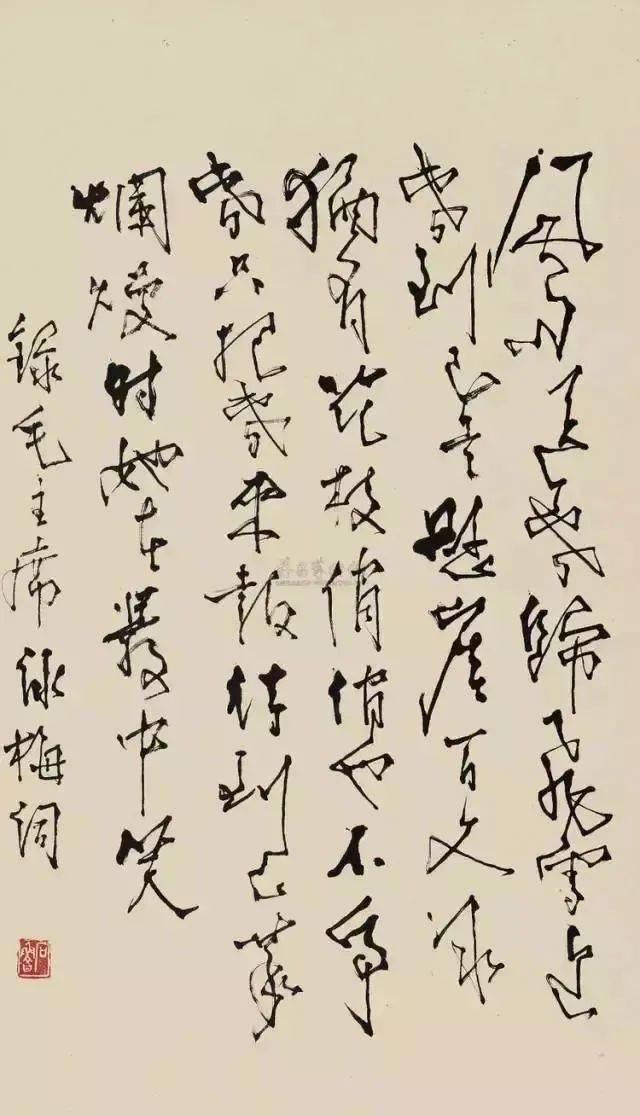 風雨送春歸飛雪迎
春到已是懸崖百丈冰
猶有花枝俏俏也不爭
春只把春來報待到山花
爛熳时她在叢中笑
録毛主席詠梅詞
石魯